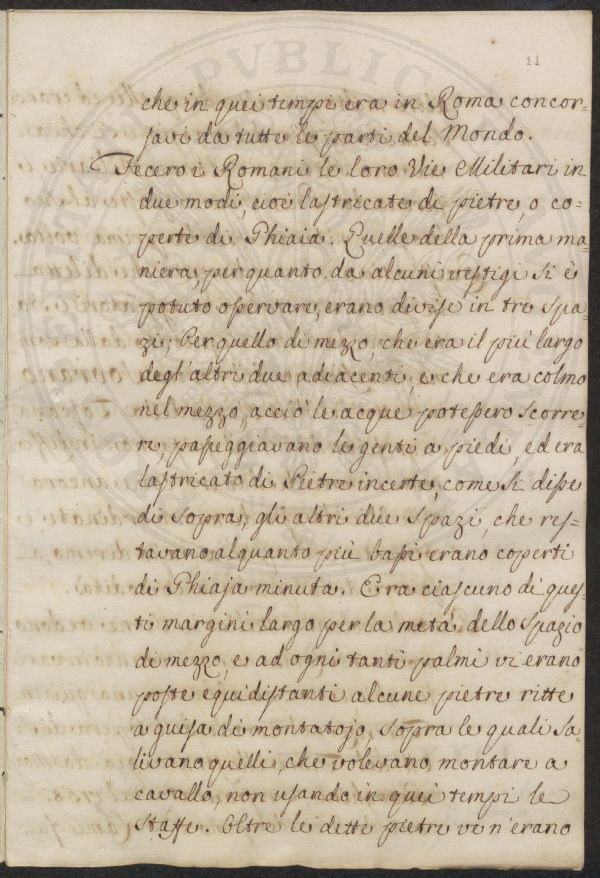 11
che in quei tempi era in Roma concor-
savi da tutte le parti del Mondo.
Fecero i Romani le loro Vie Militari in
due modi, cioè lastricate di pietre, o co-
perte di Ghiaia. Quelle della prima ma-
niera, per quanto da alcuni vestigi si è
potuto osservare, erano divise in tre spa-
zi; Per quello di mezzo, che era il più largo
degl'altri due adiacenti, e che era colmo
nel mezzo, acciò le acque potessero scorre-
re, passeggiavano le genti a piedi, ed era
lastricato di Pietre incerte, come si disse
di sopra, gli altri due spazi, che res-
tavano alquanto più bassi erano coperti
di Ghiaja minuta. Era ciascuno di ques-
ti margini largo per la metà dello spazio
di mezzo, e ad ogni tanti palmi vi erano
poste equidistanti alcune pietre ritte
a guisa di montatojo, sopra le quali sa-
livano quelli, che volevano montare a
cavallo, non usando in quei tempi le
staffe. Oltre le dette pietre ve n'erano